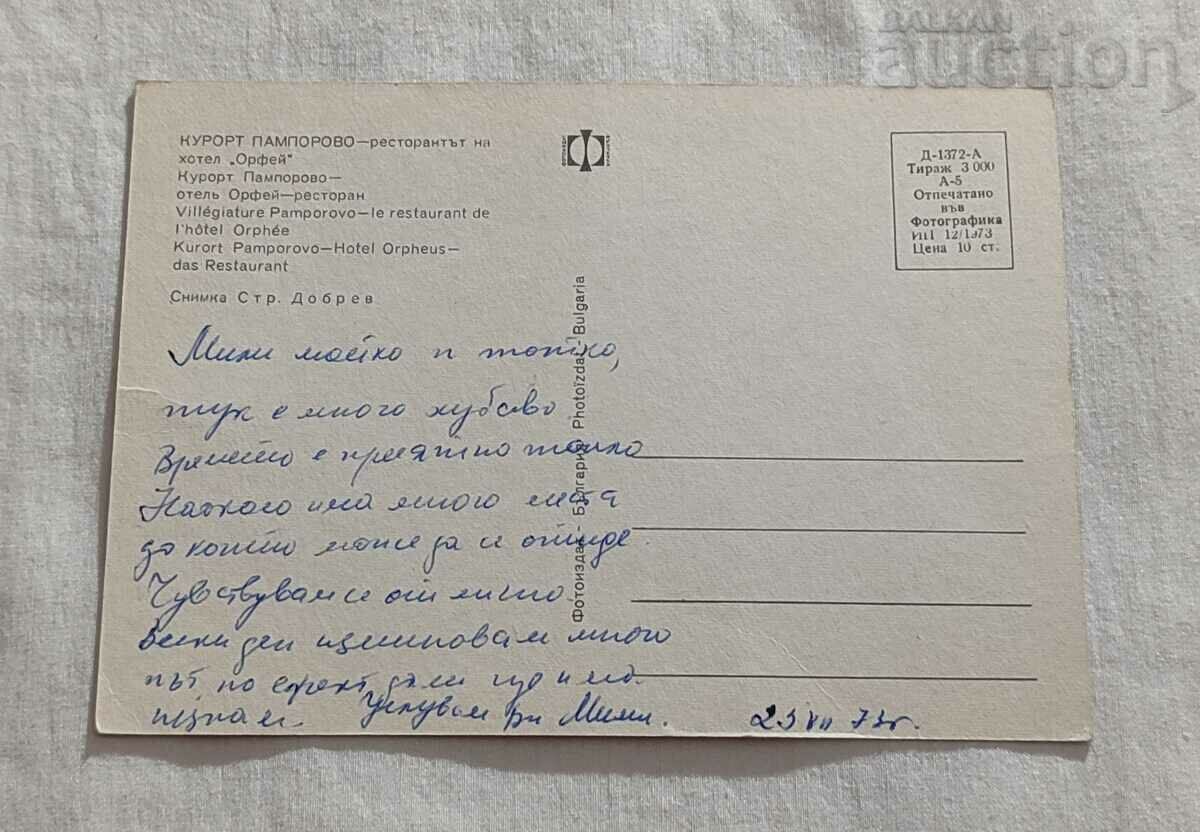 BALKAN
auction
КУРОРТ ПАМПОРОВО—ресторантът на
хотел „Орфей"
Курорт Пампорово—
отель Орфей—ресторан
Villégiature Pamporovo—le restaurant de
l'hôtel Orphée
Kurort Pamporovo—Hotel Orpheus—
das Restaurant
Снимка Стр. Добрев
Д-1372-А
Тираж 3 000
А-5
Отпечатано
във
Фотографика
VIII 12/1973
Цена 10 ст.
Фотоиздат - България Photoizdat - Bulgaria
Мили майко и татко,
тук е много хубаво
Времето е приятно топло
Наоколо има много места
до които може да се отиде.
Чувствувам се отлично.
Всеки ден изминавам много
път но ефект дали ще има
Целувам ви Мими.
73г.